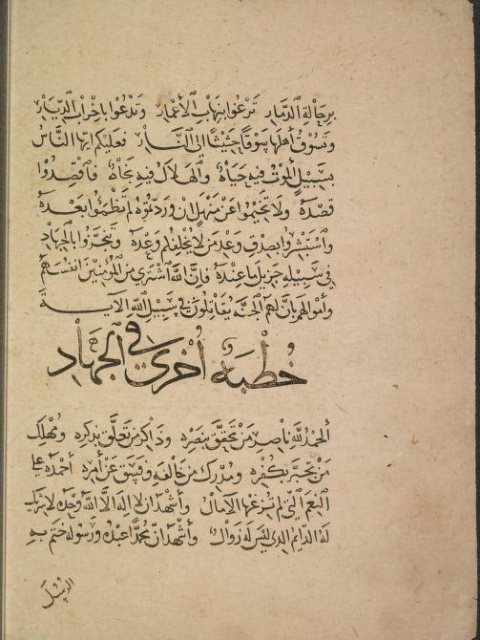 برجالة الدمار ترعوا بنهاب الأعمار وتدعوا باخراب الديار
وتسوق أهلها سوقا حثيثا الى النار فعليكم ايها الناس
بسبيل الموت فيه حياة والهلاك فيه نجاة فاقصدوا
قصده ولا تخيموا عن منهل ان وردتموه لم تظمئوا بعده
واستبشروا بصدق وعد من لا يخلفكم وعده وتنجزوا بالجهاد
في سبيله جزيل ما عنده فان الله اشترى من المؤمنين انفسهم
وأموالهم بأن لهم الجنة يقاتلون في سبيل الله الاية
خطبة أخرى في الجهاد
الحمد لله ناصر من تحقق بنصره وذاكر من تخلق بذكره ومهلك
من تجبر بكفره ومدرك من خالفه وفسق عن أمره أحمده على
النعم التي لم تنزعها الآمال وأشهد ان لا اله الا الله وحده لا شريك
له الدايم الذي ليس له زوال وأشهد ان محمدا عبده ورسوله ختم به